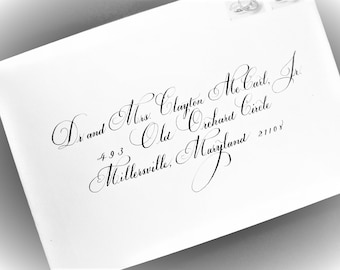 Dr and Mrs. Clayton Mc Carl, Jr.
493 Old Orchard Circle
Millersville, Maryland 21108